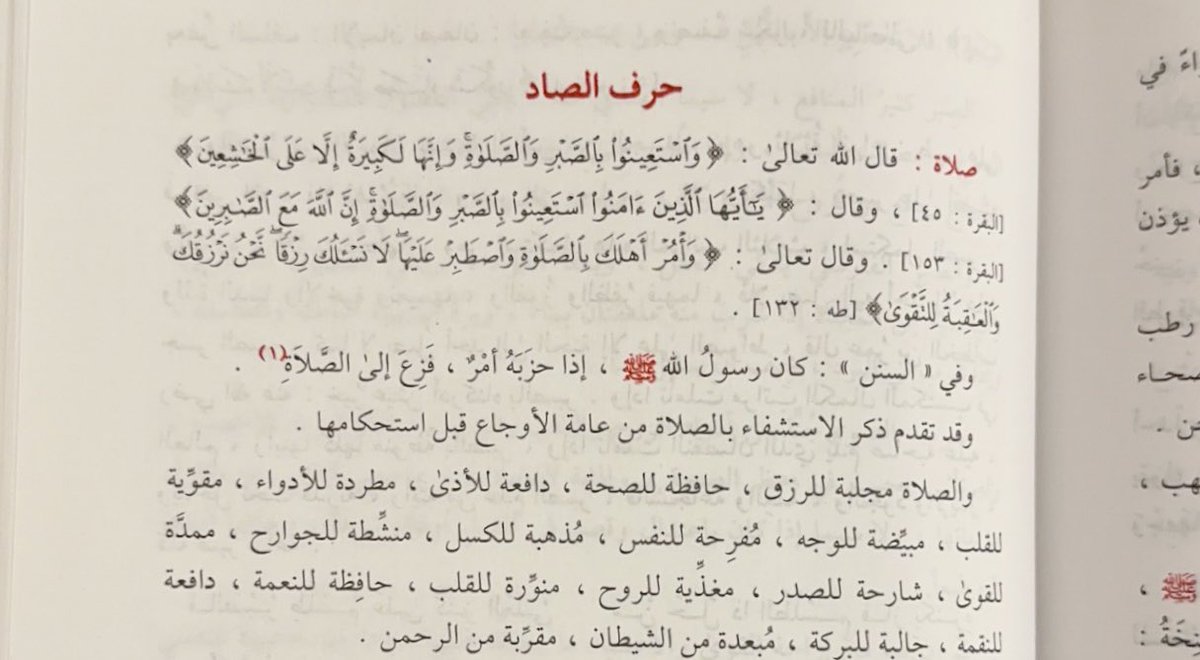 حرف الصاد
صلاة : قال الله تعالىٰ : ﴿ وَٱسْتَعِينُوا۟ بِٱلصَّبْرِ وَٱلصَّلَوٰةِ ۚ وَإِنَّهَا لَكَبِيرَةٌ إِلَّا عَلَى ٱلْخَٰشِعِينَ ﴾
[البقرة : ٤٥] ، وقال : ﴿ يَٰٓأَيُّهَا ٱلَّذِينَ ءَامَنُوا۟ ٱسْتَعِينُوا۟ بِٱلصَّبْرِ وَٱلصَّلَوٰةِ ۚ إِنَّ ٱللَّهَ مَعَ ٱلصَّٰبِرِينَ ﴾
[البقرة : ١٥٣] . وقال تعالىٰ : ﴿ وَأْمُرْ أَهْلَكَ بِٱلصَّلَوٰةِ وَٱصْطَبِرْ عَلَيْهَا ۖ لَا نَسْـَٔلُكَ رِزْقًا ۖ نَّحْنُ نَرْزُقُكَ ۗ
وَٱلْعَٰقِبَةُ لِلتَّقْوَىٰ ﴾ [طه : ١٣٢] .
وفي « السنن » : كان رسولُ الله ﷺ ، إذا حزَبَهُ أمْرٌ ، فَزِعَ إلىٰ الصَّلاَةِ(١) .
وقد تقدم ذكر الاستشفاء بالصلاة من عامة الأوجاع قبل استحكامها .
والصلاة مجلبة للرزق ، حافظة للصحة ، دافعة للأذىٰ ، مطردة للأدواء ، مقوِّية
للقلب ، مبيِّضة للوجه ، مُفرِحة للنفس ، مُذهبة للكسل ، منشِّطة للجوارح ، ممدَّة
للقوىٰ ، شارحة للصدر ، مغذِّية للروح ، منوِّرة للقلب ، حافِظة للنعمة ، دافعة
للنقمة ، جالبة للبركة ، مُبعدة من الشيطان ، مقرِّبة من الرحمن .
في
، فأمر
يؤذن
رطب
ﷺ ،